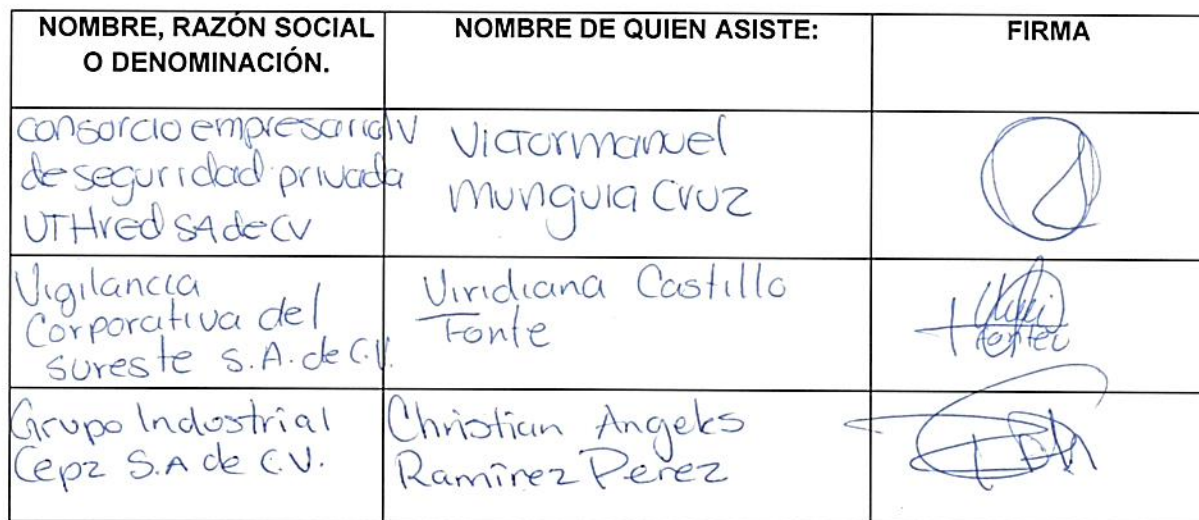 NOMBRE, RAZÓN SOCIAL
O DENOMINACIÓN.
NOMBRE DE QUIEN ASISTE:
FIRMA
consorcio empresarial
de seguridad privada
UTHred SA de CV
Victormanuel
Munguia Cruz
Vigilancia
Corporativa del
Sureste S.A. de C.V.
Viridiana Castillo
Fonte
Grupo Industrial
Cepz S.A de C.V.
Christian Angeles
Ramírez Perez